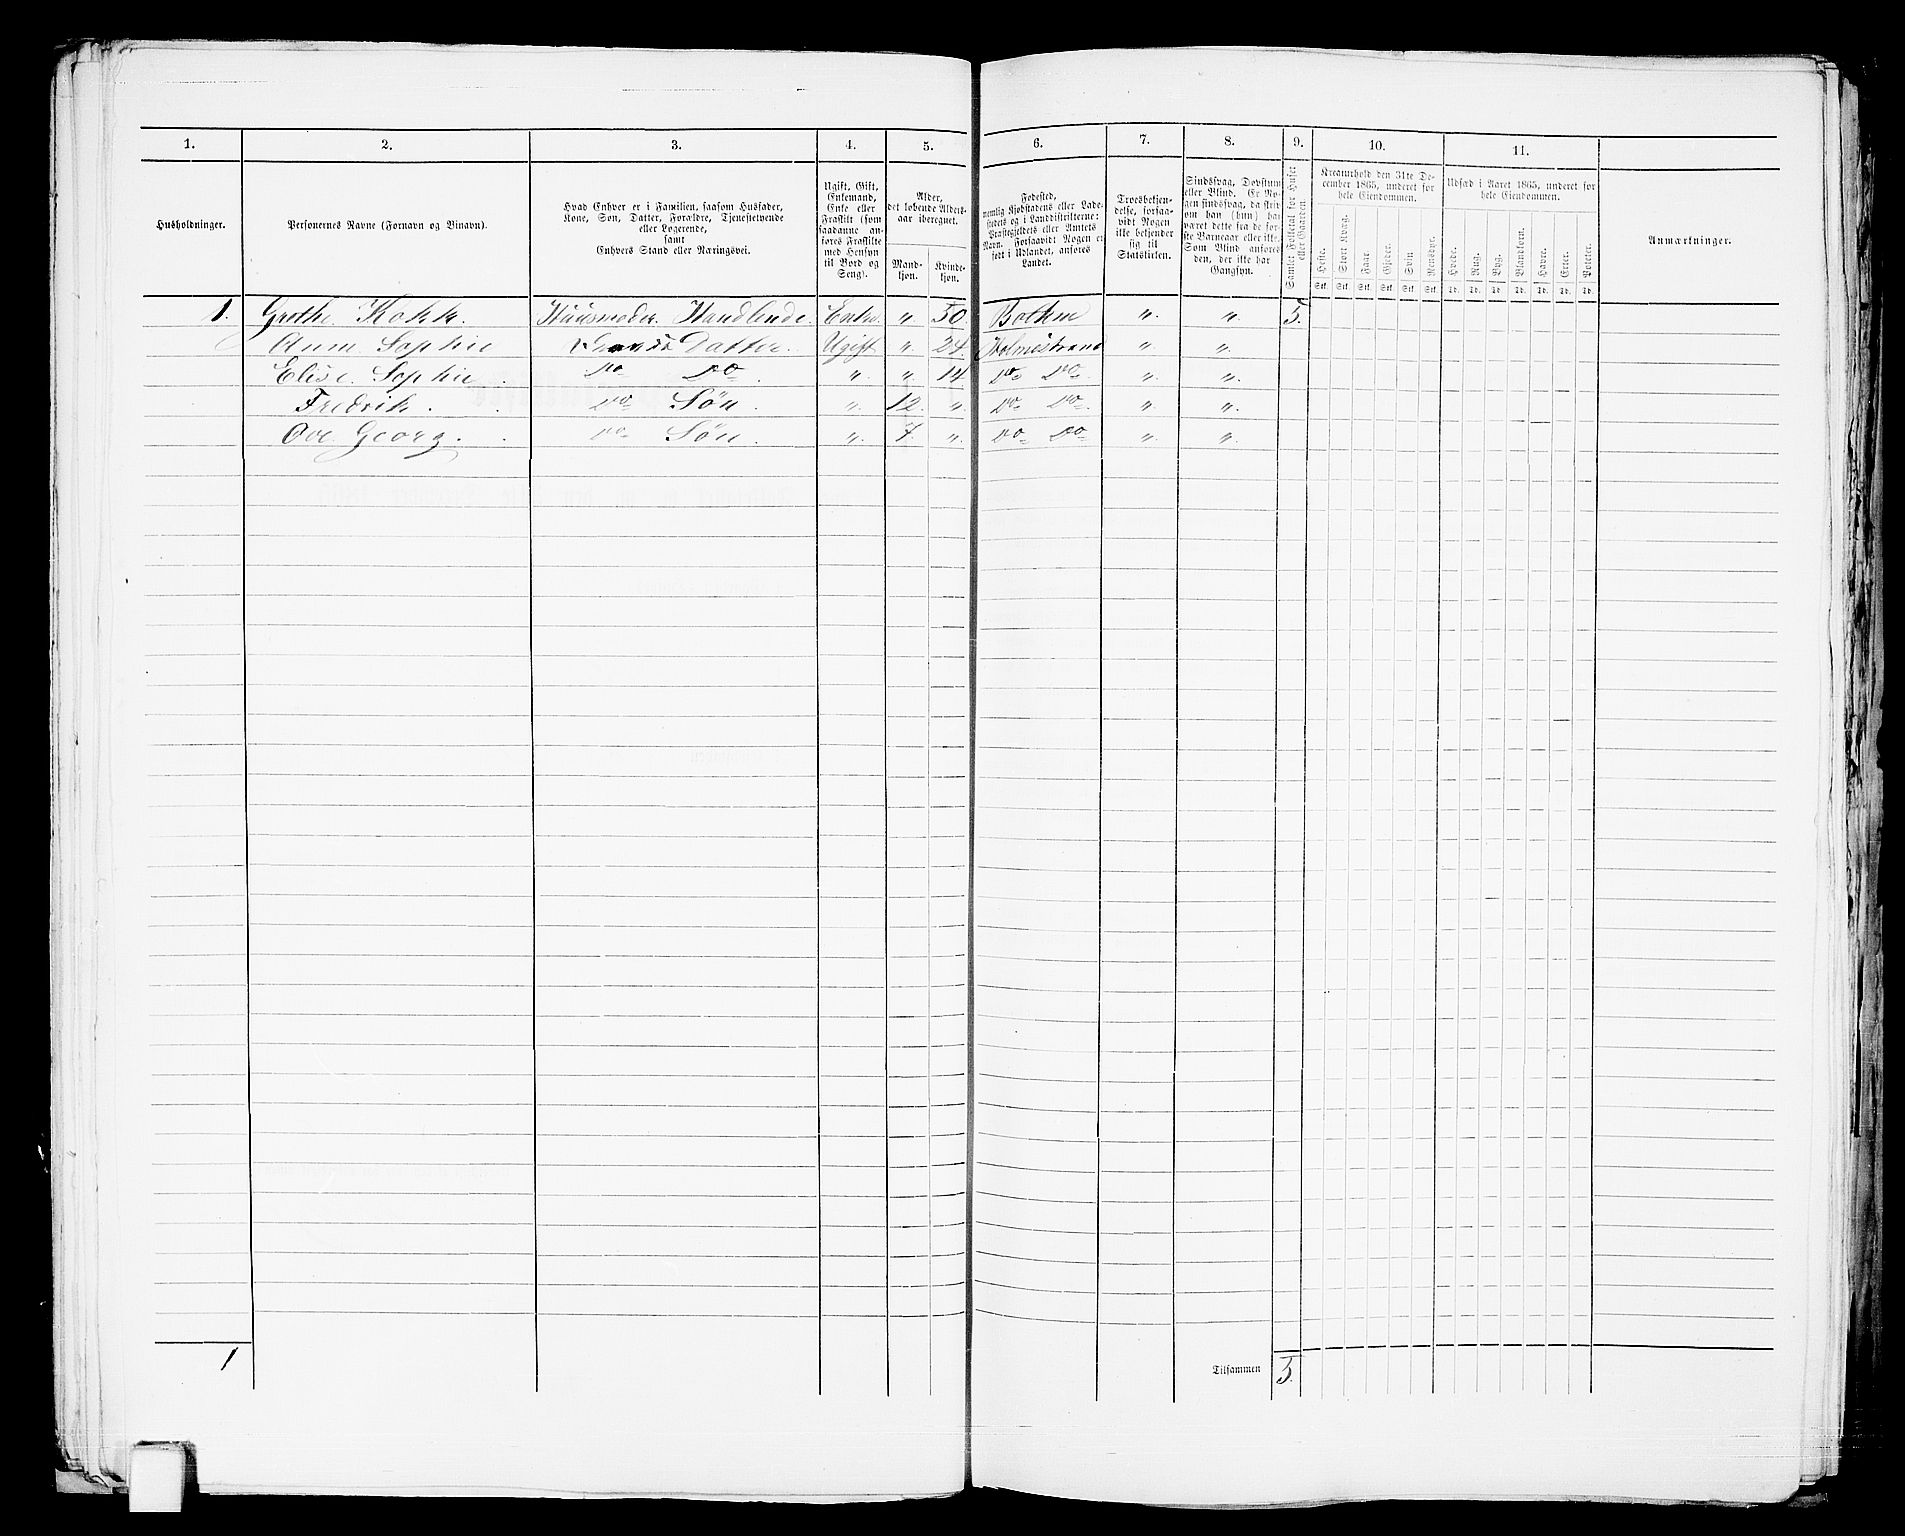 1. 2. 3. 4. 5. 6. 7. 8. 9. 10. 11.
Husholdninger.
Personernes Navne (Fornavn og Binavn).
Hvad Enhver er i Familien, saasom Husfader,
Kone, Søn, Datter, Forældre, Tjenestetyende
eller Logerende,
samt
Enhvers Stand eller Næringsvei.
Ugift, Gift,
Enkemand,
Enke eller
Fraskilt (som
saadanne an-
føres Fraskilte
med Hensyn
til Bord og
Seng).
Alder,
det løbende Alders-
aar iberegnet.
Mand-
kjøn.
Kvinde-
kjøn.
Fødested,
nemlig Kjøbstadens eller Lade-
stedets og i Landdistrikterne:
Præstegjeldets eller Amtets
Navn. Forsaavidt Nogen er
født i Udlandet, anføres
Landet.
Troesbekjen-
delse, forsaa-
vidt Nogen
ikke bekjender
sig til
Statskirken.
Sindssvag, Døvstum
eller Blind. Er No-
gen sindssvag, da skriv
om han (hun) har
været dette fra de før-
ste Barneaar eller ikke.
Som Blind anføres
den, der ikke har
Gangsyn.
Samlet Folketal for Huset
eller Gaarden.
Kreaturhold den 31te De-
cember 1865, underet for
hele Eiendommen.
Heste. Stort Kvæg. Faar. Gjeder. Svin Rensdyr.
Stk. Stk. Stk. Stk. Stk. Stk.
Udsæd i Aaret 1865, underet for
hele Eiendommen.
Hvede. Rug. Byg. Blandkorn. Havre. Erter. Poteter.
Td. Td. Td. Td. Td. Td. Td.
Anmærkninger.
1. Grethe Kokk. Huusmoder. Handlende. Enke. " 50 " " 5.
Anne Sophie Datter. Ugift " 24. Holmestrand " "
Elise Sophie. Do Do. " " 14 Do Do. " "
Fredrik. Do Søn. " 12. " Do Do. " "
Ove Georg. Do Søn. " 7. " Do Do " "
1 Tilsammen 5.